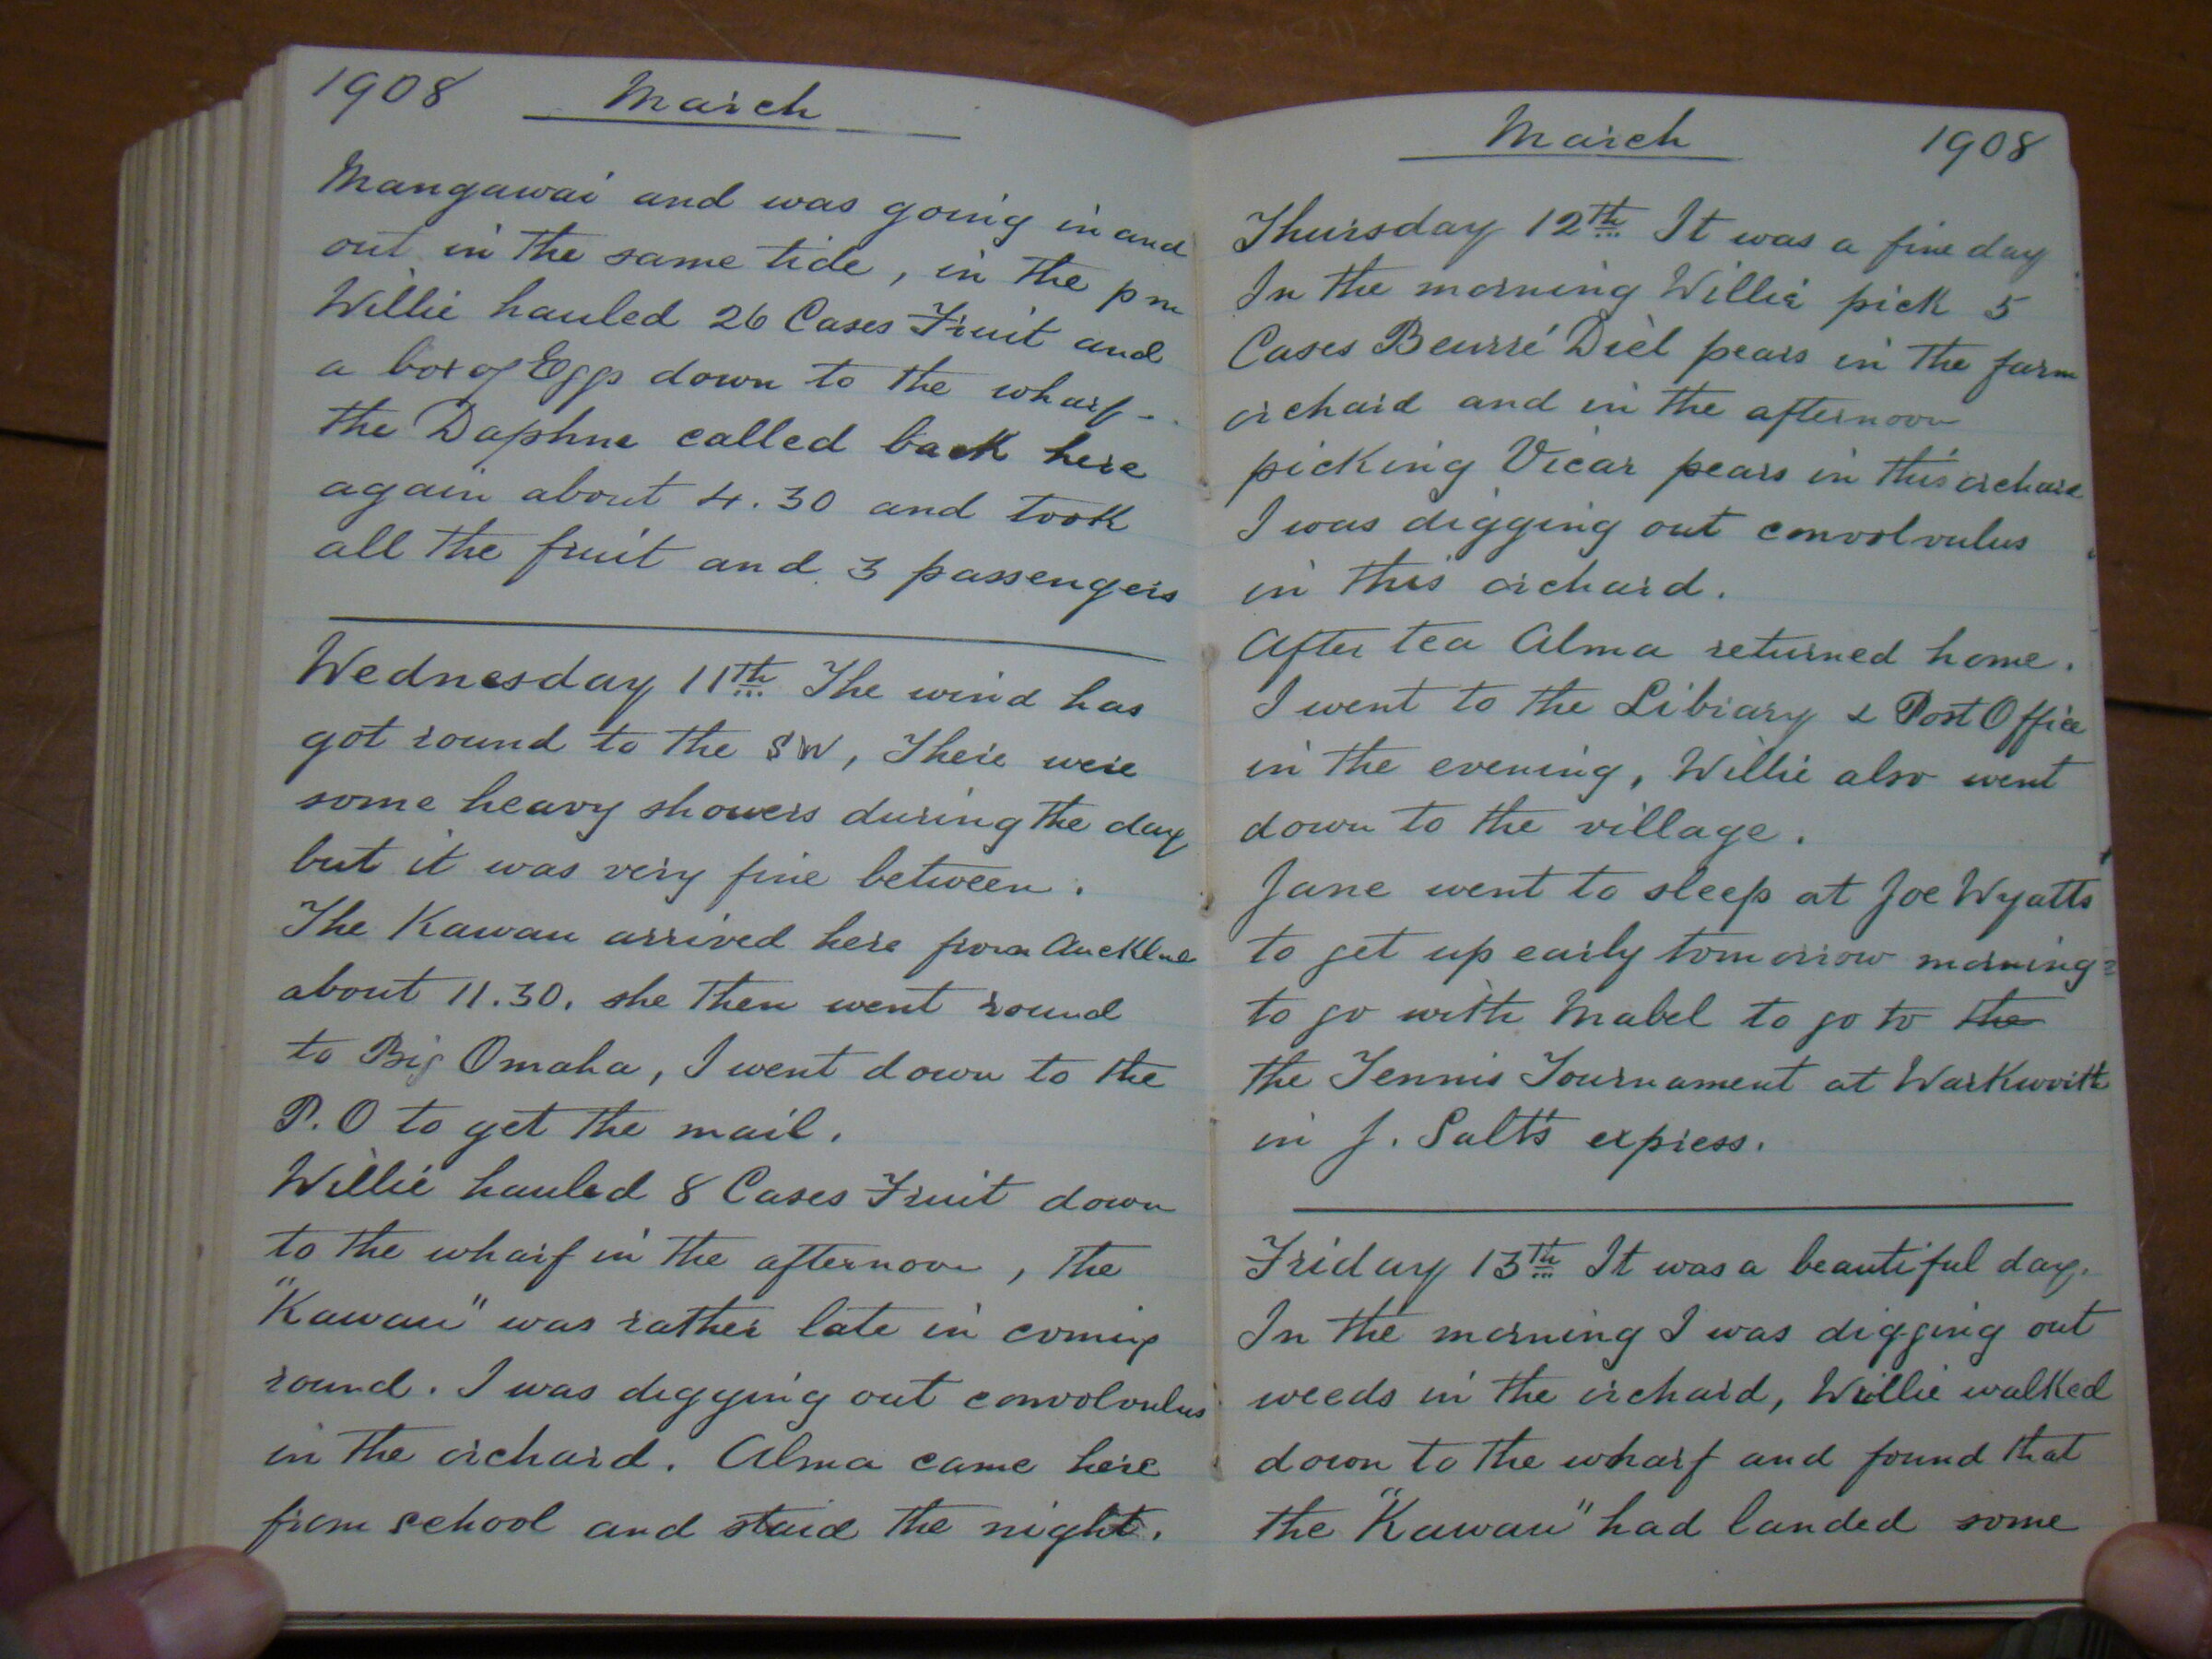 1908 March
Mangawai and was going in and
out in the same tide, in the pm
Willie hauled 26 Cases Fruit and
a box of Eggs down to the wharf -
the Daphne called back here
again about 4.30 and took
all the fruit and 3 passengers
Wednesday 11th The wind has
got round to the SW, There were
some heavy showers during the day
but it was very fine between.
The Kawau arrived here from Auckland
about 11.30. she then went round
to Big Omaha, I went down to the
P.O to get the mail.
Willie hauled 8 Cases Fruit down
to the wharf in the afternoon, the
"Kawau" was rather late in coming
round. I was digging out convolvulus
in the orchard. Alma came here
from school and staid the night.
March 1908
Thursday 12th It was a fine day
In the morning Willie pick 5
Cases Beurré Diel pears in the farm
orchard and in the afternoon
picking Vicar pears in this orchard
I was digging out convolvulus
in this orchard.
After tea Alma returned home.
I went to the Library & Post Office
in the evening, Willie also went
down to the village.
Jane went to sleep at Joe Wyatts
to get up early tomorrow morning
to go with Mabel to go to the
the Tennis Tournament at Warkworth
in J. Salt's express.
Friday 13th It was a beautiful day.
In the morning I was digging out
weeds in the orchard, Willie walked
down to the wharf and found that
the "Kawau" had landed some